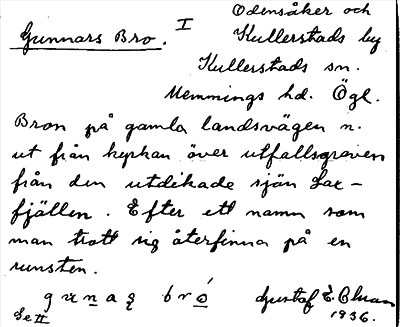 Odensåker och
Gunnars Bro. I Kullerstads by
Kullerstads sn.
Memmings hd. Ögl.
Bron på gamla landsvägen n.
ut från kyrkan över utfallsgraven
från den utdikade sjön Lax-
fjällen. Efter ett namn som
man trott sig återfinna på en
runsten.
Gustaf E. Ohman
Se II 1936.